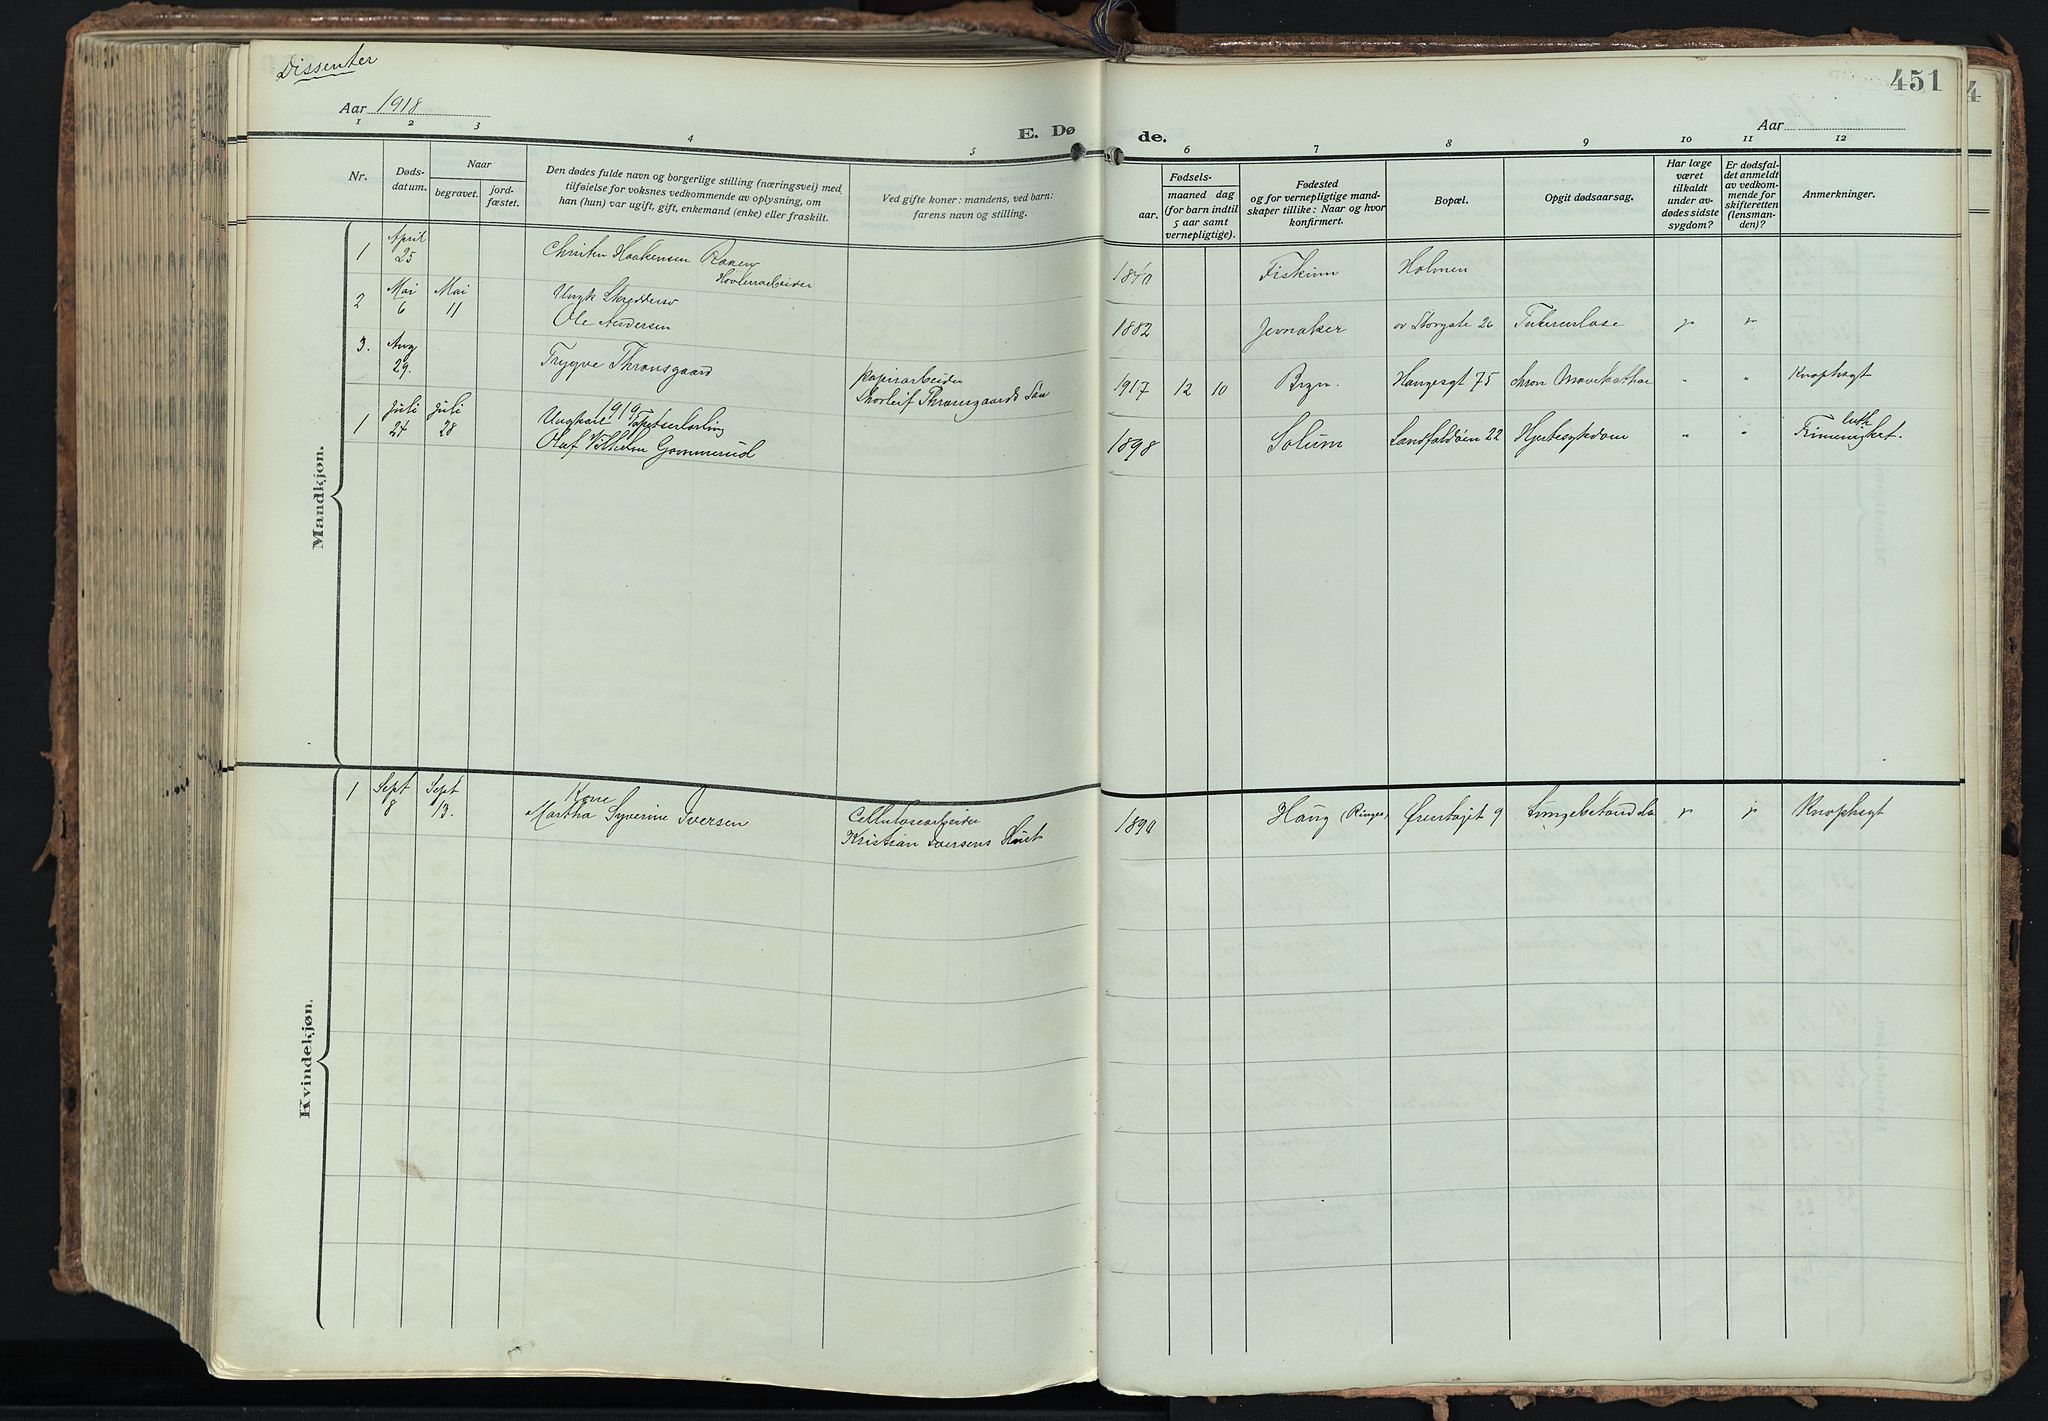 Dissenter
Aar 1918
451
Aar
E. Døde.
1 2 3 4 5 6 7 8 9 10 11 12
Nr.
Døds-
datum.
Naar
begravet.
jord-
fæstet.
Den dødes fulde navn og borgerlige stilling (næringsvei) med
tilføielse for voksnes vedkommende av oplysning, om
han (hun) var ugift, gift, enkemand (enke) eller fraskilt.
Ved gifte koner: mandens, ved barn:
farens navn og stilling.
Fødsels-
aar.
maaned dag
(for barn indtil
5 aar samt
vernepligtige).
Fødested
og for vernepligtige mand-
skaper tillike: Naar og hvor
konfirmert.
Bopæl.
Opgit dødsaarsag.
Har læge
været
tilkaldt
under av-
dødes sidste
sygdom?
Er dødsfal-
det anmeldt
av vedkom-
mende for
skifteretten
(lensman-
den)?
Anmerkninger.
Mandkjøn.
1 April 25 Christen Haakensen 1840 Fiskum Holmen
Høvleriarbeider
2 Mai 6 Mai 11 Ungk
Ole Andersen 1882 Jevnaker Storgate 26 Tuberculose
3. Aug 29. Trygve Thronsgaard papirarbeider
Thorleif Thronsgaards Søn 1917 12 10 Haugesgt 75 " " Knophsgt
1919
1 Juli 24 Juli 28 Ungkarl
Olaf Vilhelm Gommerud 1898 Solum Landfaldøien 22 Hjertesygdom " "
Kvindekjøn.
1 Sept 8 Sept 13. Kone
Martha Syverine Iversen Cellulosearbeider
Kristian Iversens Hust 1890 Haug (Ringer) 9 Knophsgt